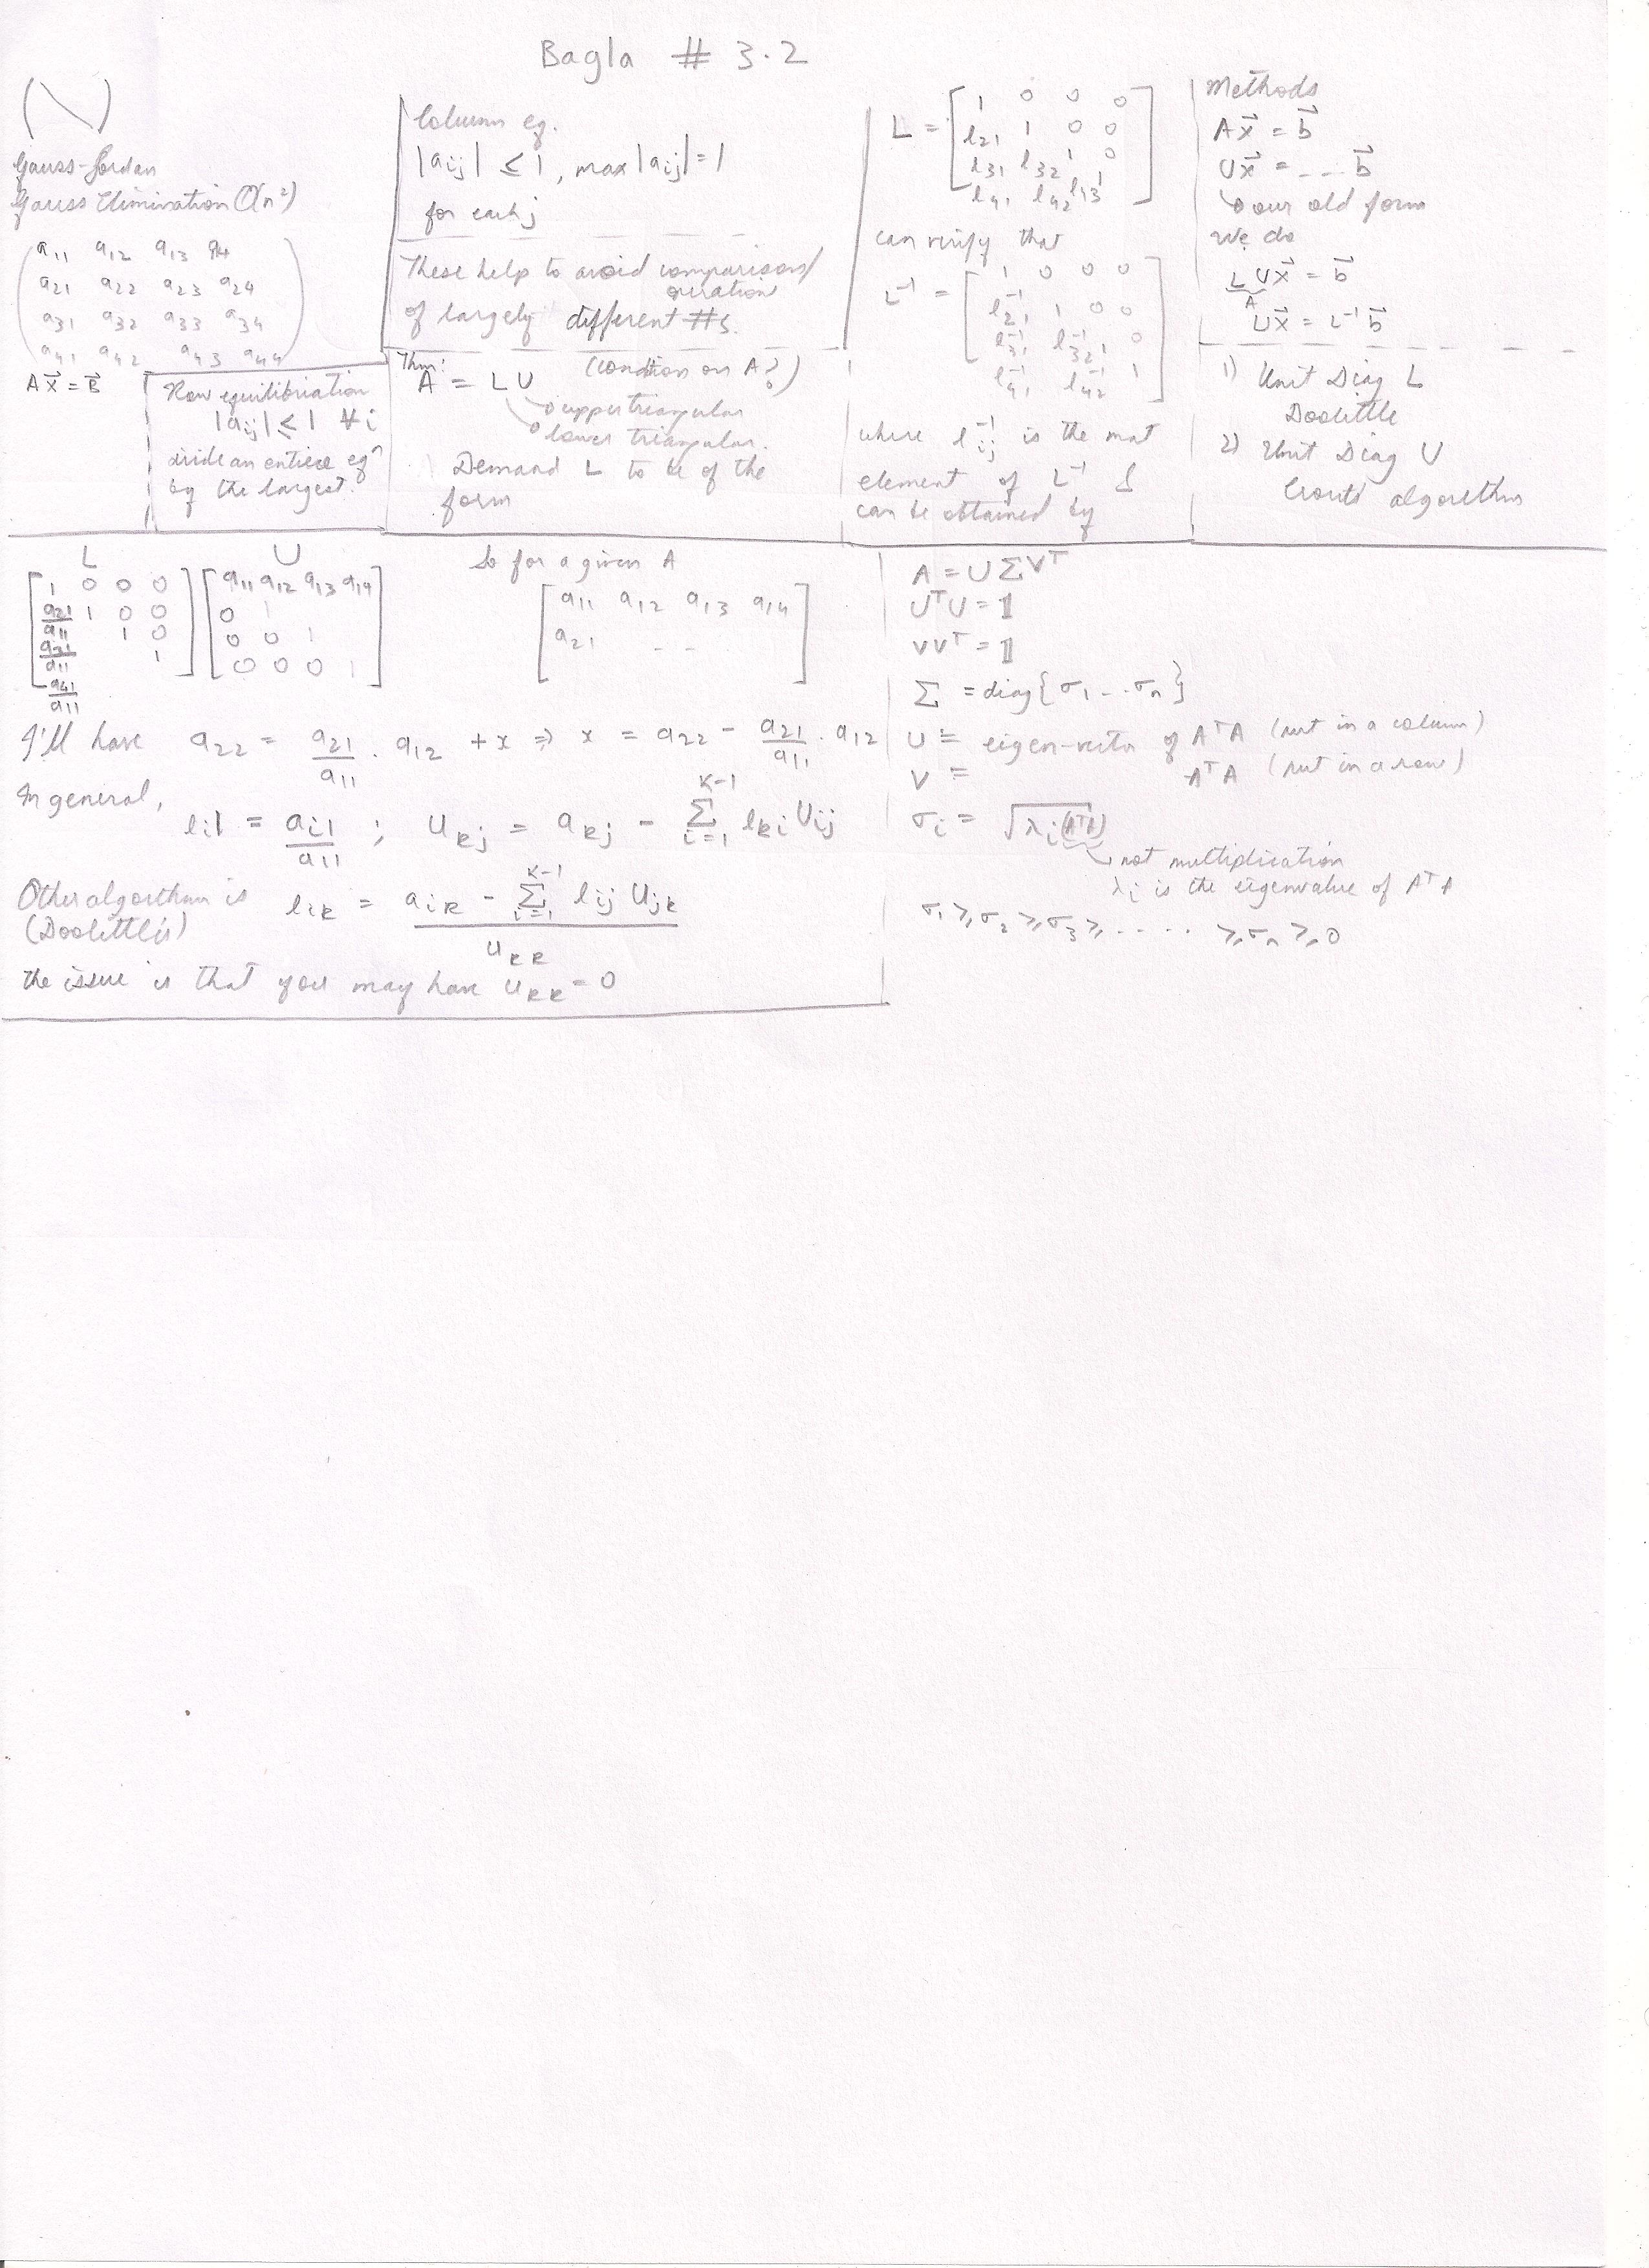 Bagla # 3.2
Gauss-Jordan
Gauss Elimination O(n²)
a11 a12 a13 a14
a21 a22 a23 a24
a31 a32 a33 a34
a41 a42 a43 a44
Ax⃗ = B⃗
Row equilibriation
|aij| ≤ 1 ∀ i
divide an entire eqⁿ
by the largest.
Column eq.
|aij| ≤ 1, max |aij| = 1
for each j
These help to avoid comparison/
operation
of largely different #s.
Thm: A = LU (condition on A?)
upper triangular
lower triangular.
Demand L to be of the
form
L = [1 0 0 0
l21 1 0 0
l31 l32 1 0
l41 l42 l43 1]
can verify that
L⁻¹ = [1 0 0 0
l⁻¹21 1 0 0
l⁻¹31 l⁻¹32 1 0
l⁻¹41 l⁻¹42 1]
where l⁻¹ij is the mat
element of L⁻¹ &
can be obtained by
Methods
Ax⃗ = b⃗
Ux⃗ = ... b⃗
our old form
We do
LUx⃗ = b⃗
A
Ux⃗ = L⁻¹ b⃗
1) Unit Diag L
Doolittle
2) Unit Diag U
Crouts' algorithm
L U
[1 0 0 0] [a11 a12 a13 a14]
a21/a11 1 0 0 0 1
a31/a11 1 0 0 0 1
a41/a11 1 0 0 0 1
So for a given A
[a11 a12 a13 a14
a21 - -]
I'll have a22 = a21/a11 . a12 + x ⇒ x = a22 - a21/a11 . a12
In general,
li1 = ai1/a11 ; Ukj = akj - Σ_{i=1}^{k-1} lki Uij
Other algorithm is lik = (aik - Σ_{i=1}^{k-1} lij Ujk)/ukk
(Doolittle's)
the issue is that you may have ukk = 0
A = UΣVᵀ
UᵀU = 𝟙
VVᵀ = 𝟙
Σ = diag{σ1 -..σn}
U = eigen-vector of AᵀA (put in a column)
V = AᵀA (put in a row)
σi = √λi(AᵀA)
not multiplication
λi is the eigenvalue of AᵀA
σ1 ≥ σ2 ≥ σ3 ≥ ..... ≥ σn ≥ 0